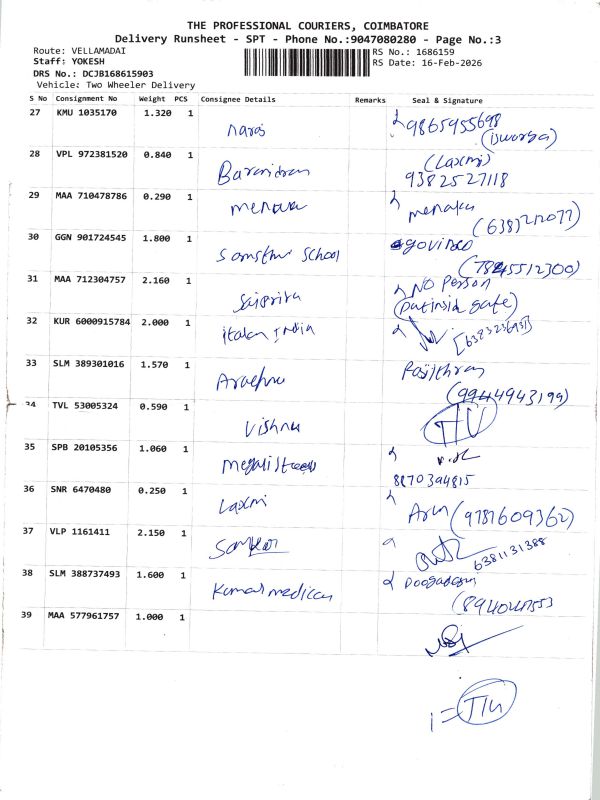 THE PROFESSIONAL COURIERS, COIMBATORE
Delivery Runsheet - SPT - Phone No.:9047080280 - Page No.:3
Route: VELLAMADAI
RS No.: 1686159
Staff: YOKESH
RS Date: 16-Feb-2026
DRS No.: DCJB168615903
Vehicle: Two Wheeler Delivery
S No Consignment No Weight PCS Consignee Details Remarks Seal & Signature
27 KMU 1035170 1.320 1 9865955698
28 VPL 972381520 0.840 1 (Laxmi)
9382527118
29 MAA 710478786 0.290 1 menaka
30 GGN 901724545 1.800 1 School govind
31 MAA 712304757 2.160 1 Saipriya NO Person
gate)
32 KUR 6000915784 2.000 1 India
33 SLM 389301016 1.570 1
(9944943199)
34 TVL 53005324 0.590 1 Vishnu
35 SPB 20105356 1.060 1
8870394815
36 SNR 6470480 0.250 1 Laxmi Arun (9787609362)
37 VLP 1161411 2.150 1 Sankar 6381131388
38 SLM 388737493 1.600 1
39 MAA 577961757 1.000 1